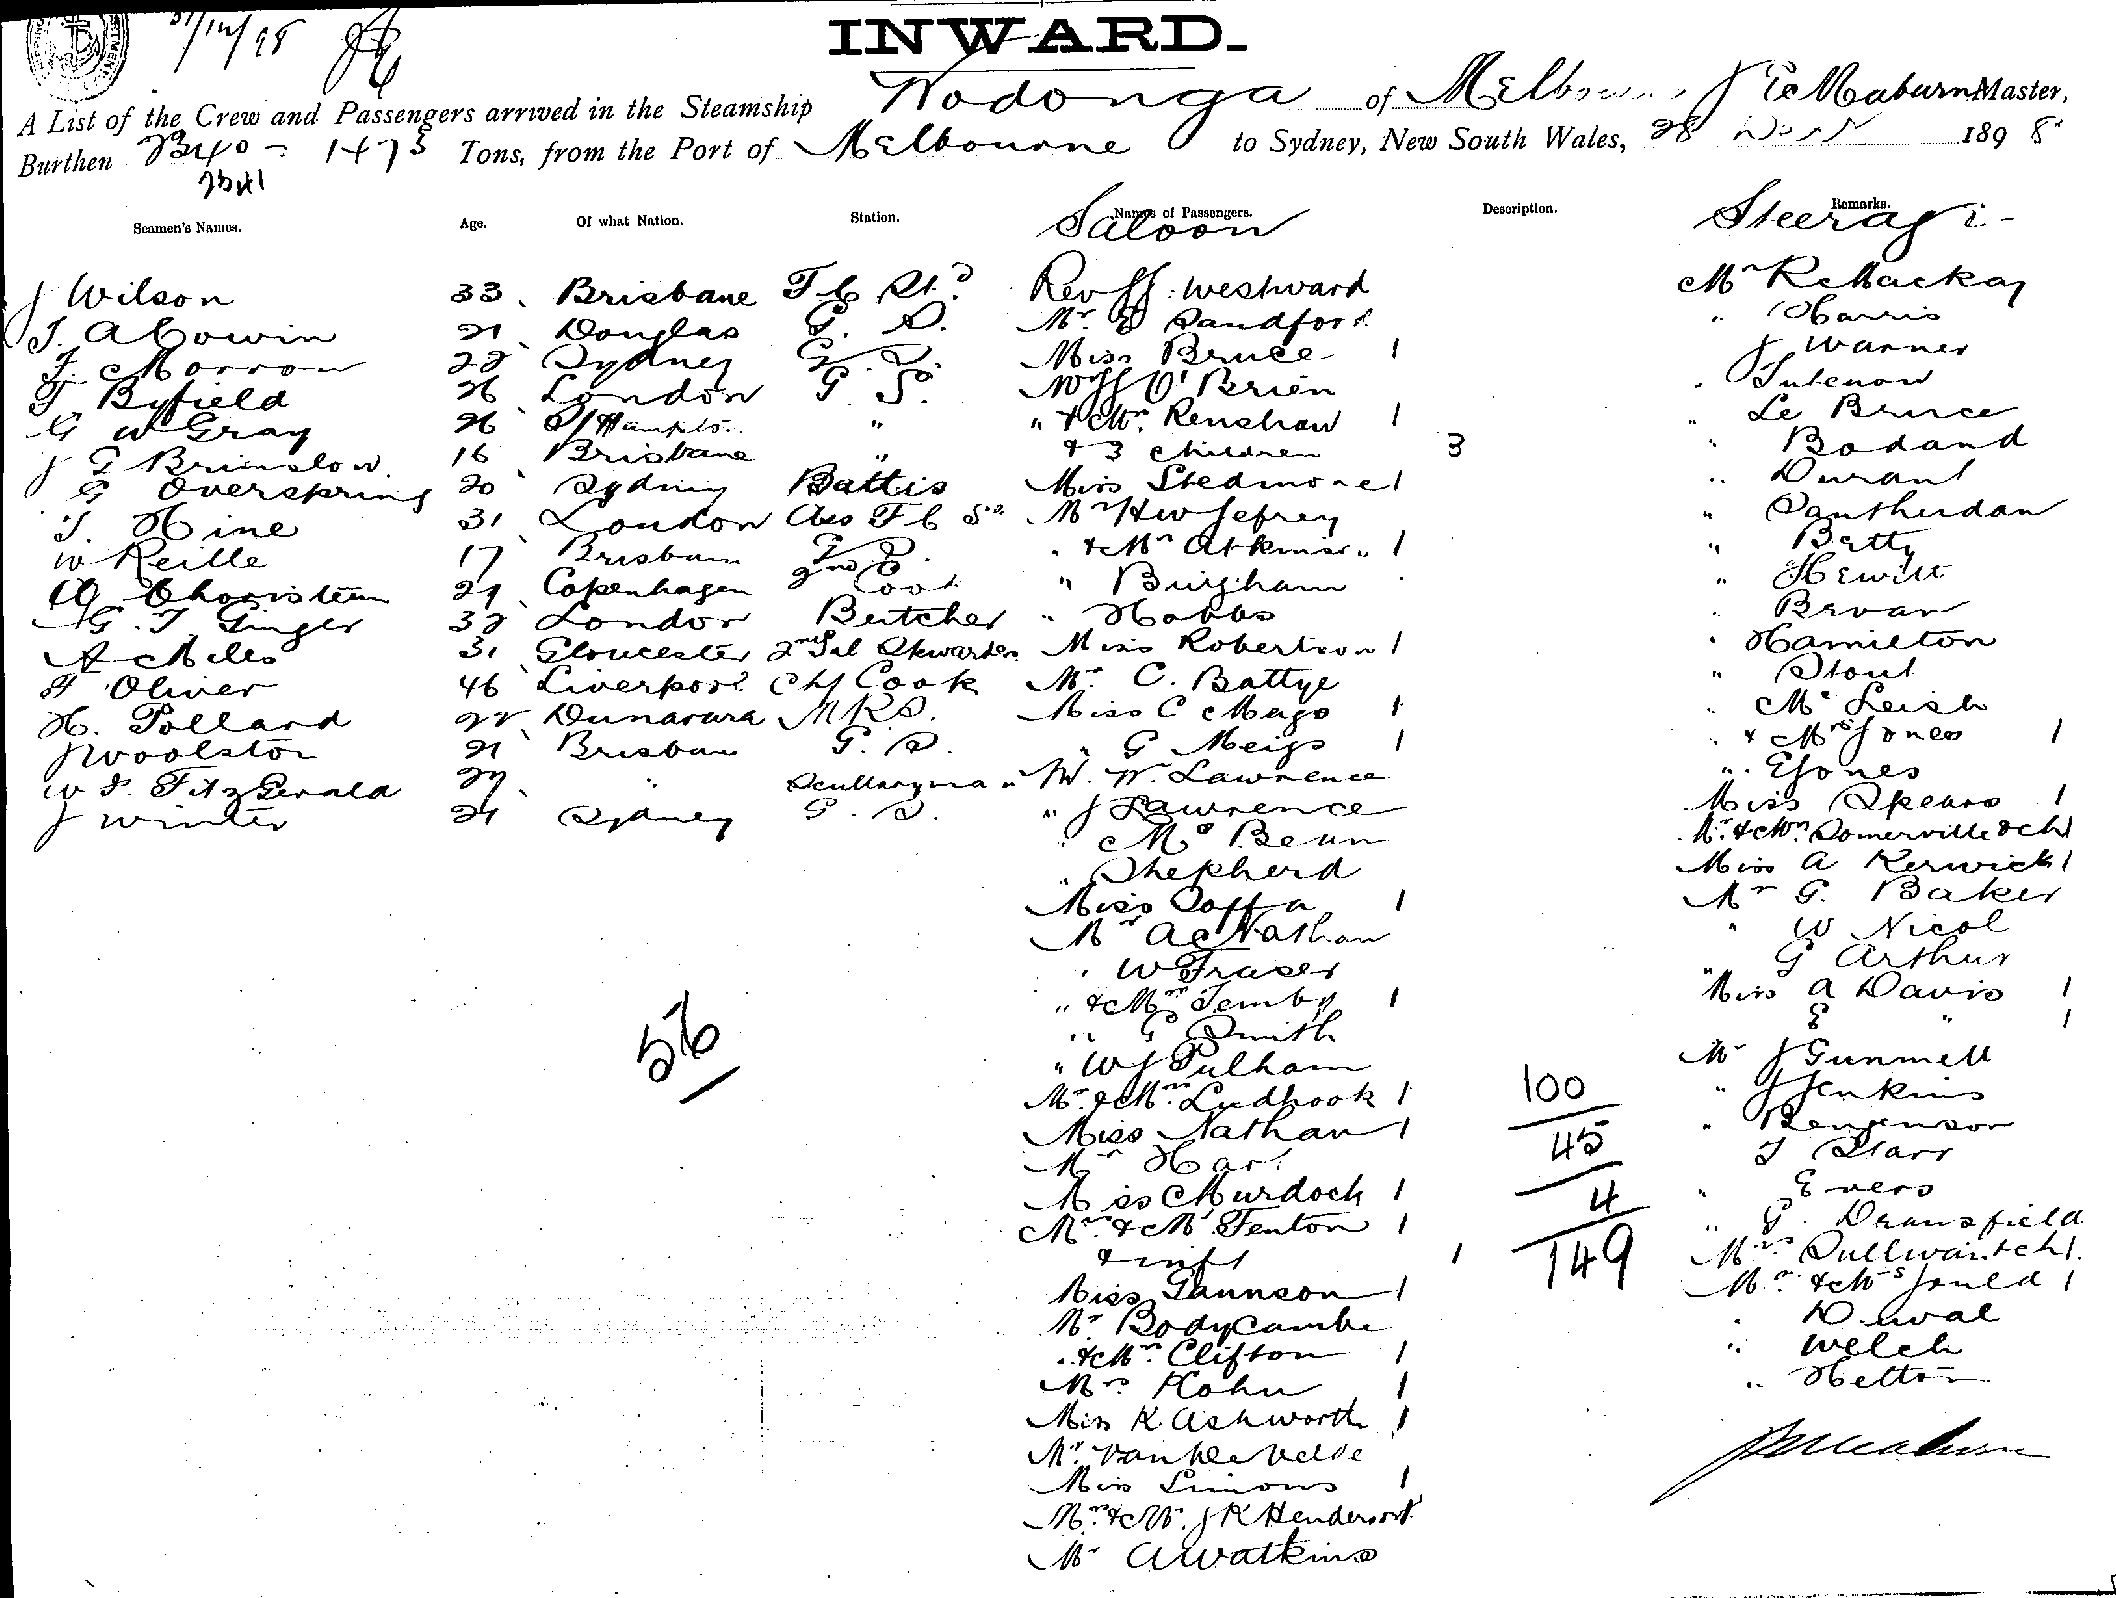 INWARD.
A List of the Crew and Passengers arrived in the Steamship Wodonga of Melbourne Master,
Burthen 2340 - 1473 Tons, from the Port of Melbourne to Sydney, New South Wales, 28 1898
2341
Seamen's Names. Age. Of what Nation. Station. Names of Passengers. Description. Remarks.
Saloon Steerage
J Wilson 33 Brisbane F C St
T. A Cowin 21 Douglas G. S.
J. Morrow 22 Sydney G. S.
T Byfield 26 London G S.
G W Gray 26 S/Hampto. "
J G Brimslow 16 Brisbane "
G Overspring 20 Sydney Battis
T. Hine 31 London Ass F C S
W Reille 17 Brisbane G S.
29 Copenhagen 2nd Cook
G. T. Ginger 32 London Butcher
A Miles 31 Gloucester 2nd Sal Stewardess
F Oliver 46 Liverpool Chf Cook
H. Pollard 22 M R S.
J Woolston 21 Brisbane G. S.
W J. FitzGerald 27 " Sculleryman
J Winter 21 Sydney G. S.
56
Rev J J. Westward
Mr. E Sandford
Miss Bruce 1
W J J O'Brien
" & Mrs. Renshaw 1
& 3 children 3
Miss Stedmore 1
Mr H W Jefrey
" & Mrs Atkinson 1
" Burgham
" Hobbs
Miss Robertson 1
Mr. C. Battye
Miss C Mago 1
" G Meigs 1
M. W. Lawrence
" J Lawrence
Mc Bean
" Shepherd
Miss 1
Mr A C Nathan
" W Fraser
" & Mrs Temby 1
" G Smith
" W J Pulham
Mr. & Mrs. Ludbook 1
Miss Nathan 1
Mr Hart
Miss Murdoch 1
Mr. & Mrs Fenton 1
& inft 1
Miss Gunnson 1
Mr Bodycambe
" & Mrs. Clifton 1
Mrs. Kohn 1
Miss K Ashworth 1
Mr. Van De Velde
Miss Simons 1
Mr. & Mrs. J K Henderson 1
Mr A Watkins
100
45
4
149
Mr R Mackay
" Harris
J Warner
" Le Bruce
" Bodand
" Durant
" Betty
" Hewitt
" Bevan
" Hamilton
" Stout
" Mc Leish
" & Mrs Jones 1
" E Jones
Miss Spears 1
Mr. & Mrs Somerville & ch 1
Miss A Kerwick 1
Mr G. Baker
" W Nicol
" G Arthur
Miss A Davis 1
E " 1
Mr J Gunmell
" J Jenkins
"
T Starr
" Evers
" G. Dransfield
Mrs & ch 1.
Mr. & Mrs Gould 1
" Duval
" Welch
" Hetton